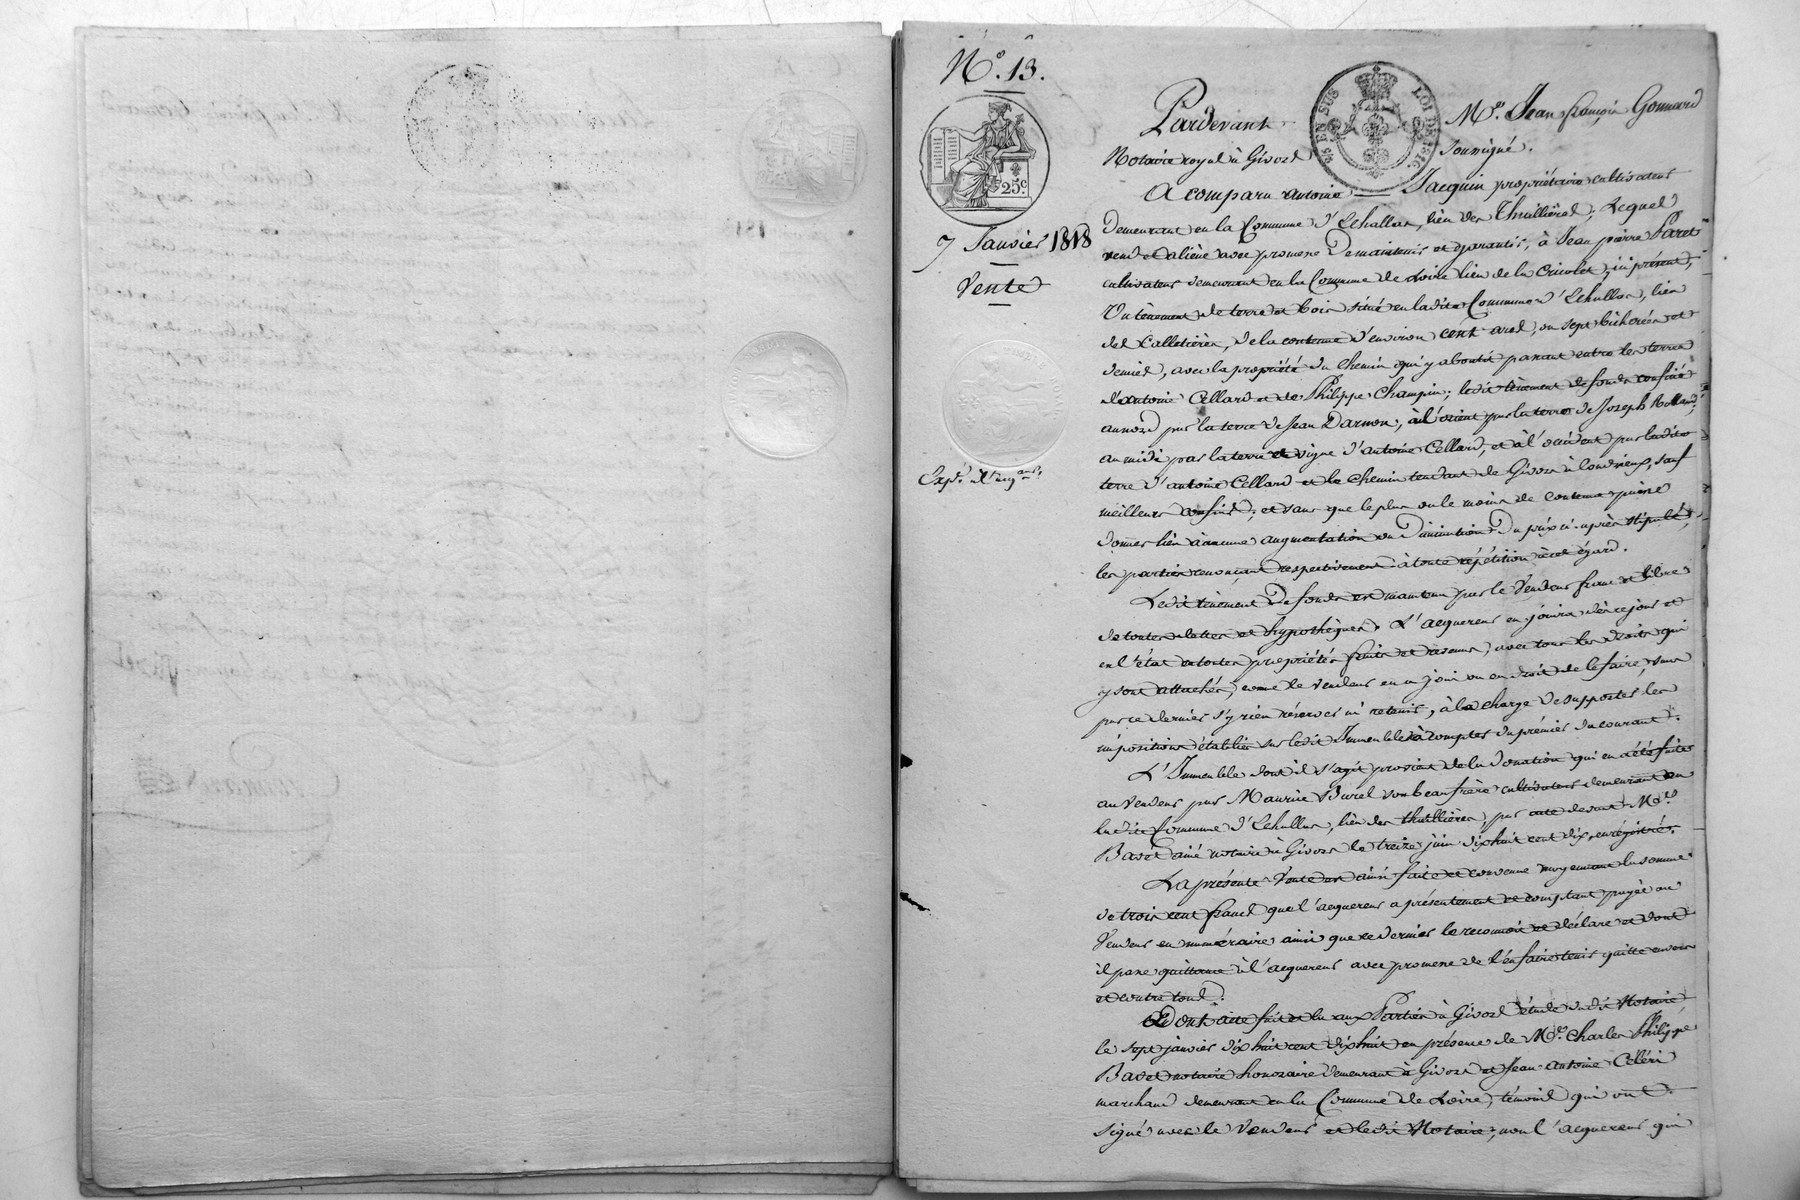 N.º 13.
25.c
7 Janvier 1818
Vente
Exp.
25 EN SUS LOI DE 1816
Pardevant M.e Jean françois Gonnard
Notaire royal à Givors soussigné.
A comparu antoine Jacquin propriétaire cultivateur
demeurant en la Commune d'Echallas, lieu des Thuillières; Lequel
vend et aliène avec promesse De maintenir et garantir, à Jean pierre
cultivateur demeurant en la Commune de Loire lieu de la; ici présent,
Un tènement de terre et bois situé en ladite Commune d'Echallas, lieu
des, de la contenue d'environ cent ares, ou sept bicherées et
demies, avec la propriété du chemin qui y aboutit passant entre les terres
d'antoine Cellard et de Philippe Champin; ledit tènement de fonds confiné
au nord par la terre de Jean Darmon, à l'orient par la terre de Joseph Rolland;
au midi par la terre et vigne d'antoine Cellard, et à l'occident par ladite
terre d'antoine Cellard et le chemin tendant de Givors à Condrieux, sauf
meilleurs confins; et sans que le plus ou le moins de contenue puisse
donner lieu à aucune augmentation ou Diminution Du prix ci-après stipulé,
les parties renonçant respectivement à toute répétition à cet égard.
Ledit tènement De fonds est maintenu par le Vendeur franc et libre
de toutes dettes et hypothèques. L'acquereur en jouira dès ce jour et
en l'état en toutes propriétés fruits et revenus, avec tous les droits qui
y sont attachés, comme le vendeur en a joui ou eu droit de le faire, sans
par ce dernier s'y rien réserver ni retenir, à la charge de supporter les
impositions établies sur ledit Immeuble à compter du premier du courant.
L'Immeuble dont il s'agit provient de la Donation qui en a été faite
au vendeur par Maurice Burel son beaufrère cultivateur demeurant en
ladite Commune d'Echallas, lieu des thuillières, par acte devant M.e
Badet ainé notaire à Givors le treize juin dix huit cent dix, enrégistré.
La présente Vente est ainsi faite et convenue moyennant la somme
de trois cent francs que l'acquereur a présentement et comptant payée au
Vendeur en numéraire ainsi que ce dernier le reconnoit et déclare et dont
il passe quittance à l'acquereur avec promesse de l'en faire tenir quitte envers
et contre tous.
Dont acte fait et lu aux Parties à Givors étude dudit Notaire
le sept janvier dix huit cent dix huit en présence de M.e Charles Philippe
Badet notaire honoraire demeurant à Givors et Jean-antoine Celéri
marchand demeurant en la Commune de Loire, témoins qui ont
signé avec le Vendeur et ledit Notaire, non l'acquereur qui